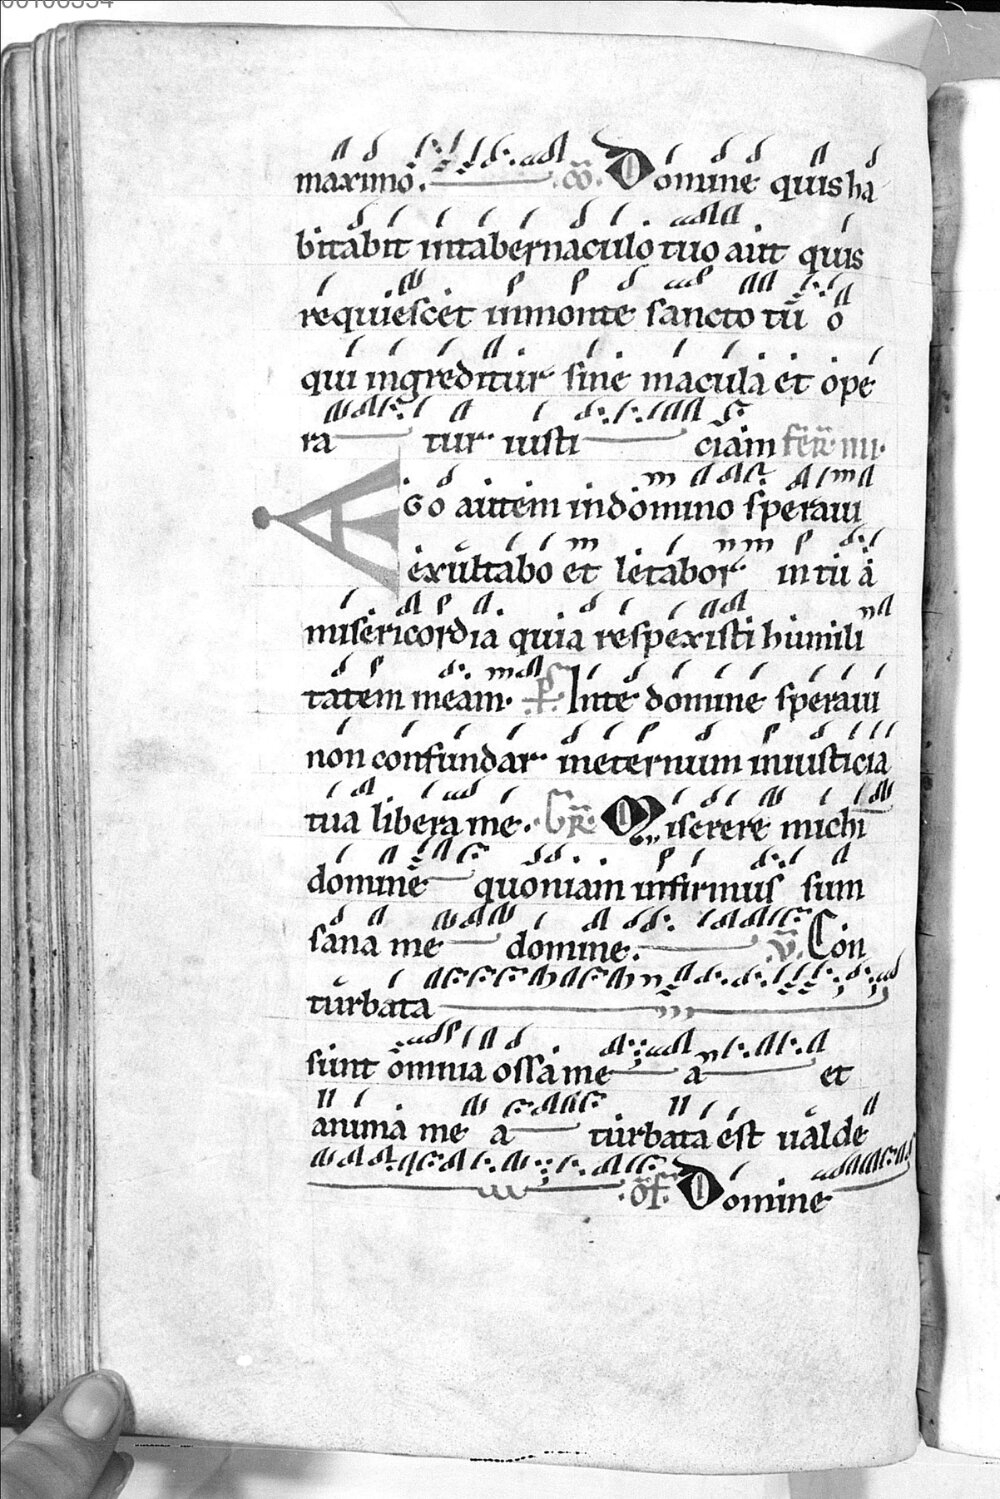 00100354
maximo. co. Domine quis ha
bitabit in tabernaculo tuo aut quis
requiescet in monte sancto tuo
qui ingreditur sine macula et ope
ra tur iusti ciam fer. iiii.
AGO autem in domino speraui
exultabo et letabor in tua
misericordia quia respexisti humili
tatem meam. ps. In te domine speraui
non confundar in eternum in iusticia
tua libera me. GR. Miserere michi
domine quoniam infirmus sum
sana me domine. V. Con
turbata
sunt omnia ossa me a et
anima me a turbata est ualde
of. Domine